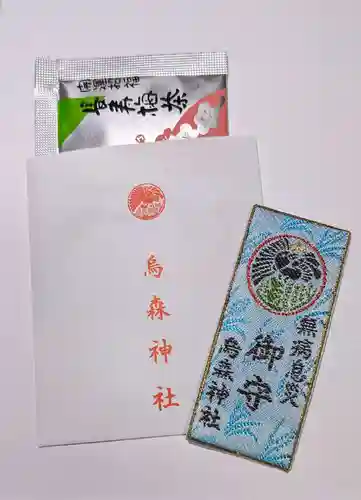 開運招福
昆布梅茶
烏森神社
無病息災
御守
烏森神社